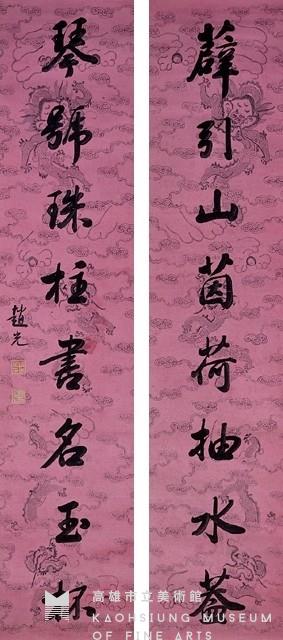 薜引山茵荷抽水蓋
琴號珠柱書名玉杯
趙光
高雄市立美術館
KAOHSIUNG MUSEUM
OF FINE ARTS